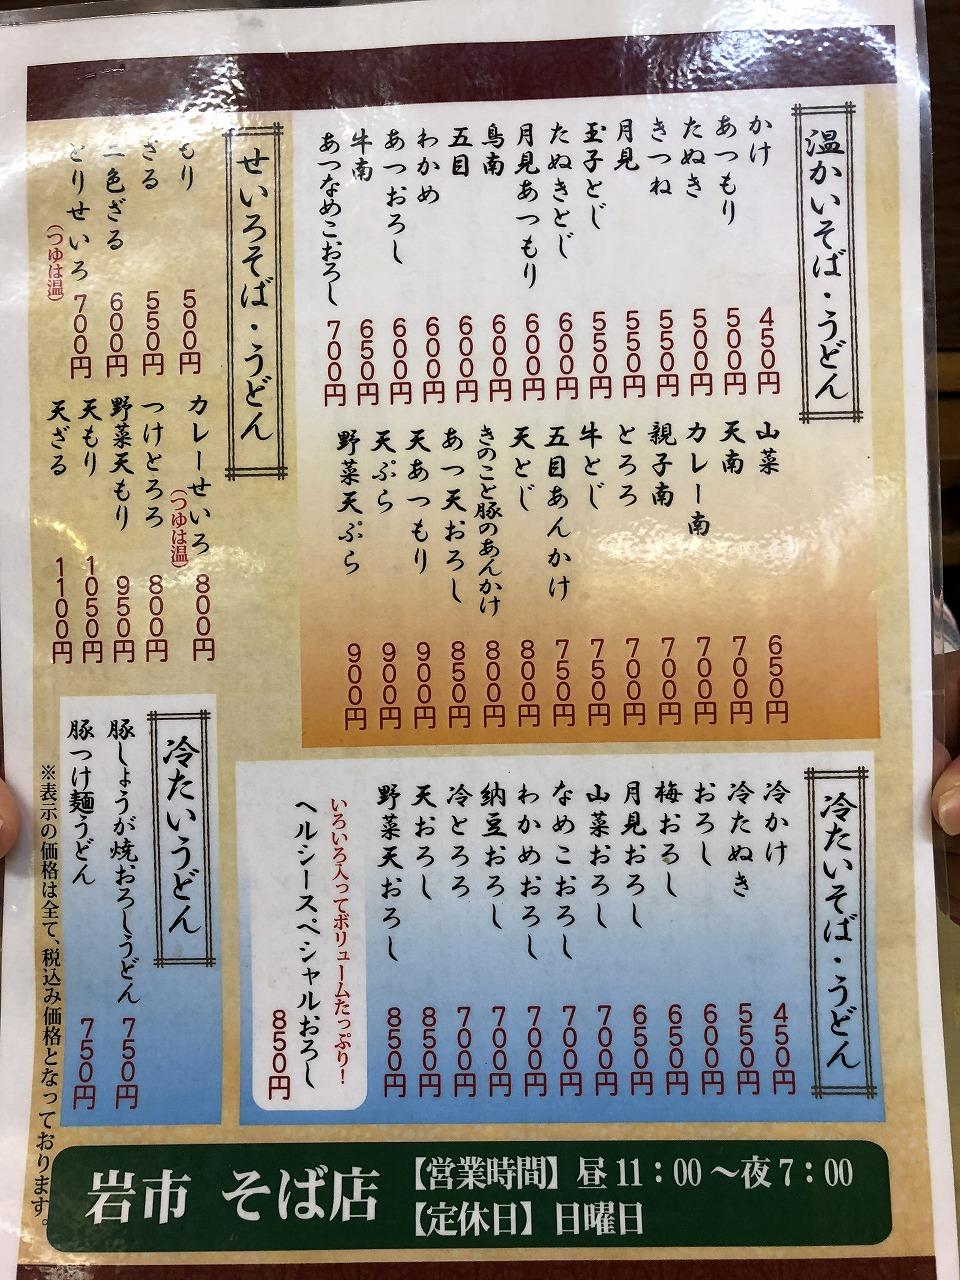 温かいそば・うどん
かけ 450円
あつもり 500円
たぬき 500円
きつね 550円
月見 550円
玉子とじ 550円
たぬきとじ 600円
月見あつもり 600円
鳥南 600円
五目 600円
わかめ 600円
あつおろし 600円
牛南 650円
あつなめこおろし 700円
山菜 650円
天南 700円
カレー南 700円
親子南 700円
とろろ 700円
牛とじ 750円
五目あんかけ 750円
天とじ 800円
きのこと豚のあんかけ 800円
あつ天おろし 850円
天あつもり 900円
天ぷら 900円
野菜天ぷら 900円
せいろそば・うどん
もり 500円
ざる 550円
二色ざる 600円
とりせいろ 700円
(つゆは温)
カレーせいろ 800円
(つゆは温)
つけとろろ 800円
野菜天もり 950円
天もり 1050円
天ざる 1100円
冷たいそば・うどん
冷かけ 450円
冷たぬき 550円
おろし 600円
梅おろし 650円
月見おろし 650円
山菜おろし 700円
なめこおろし 700円
わかめおろし 700円
納豆おろし 700円
冷とろろ 700円
天おろし 850円
野菜天おろし 850円
いろいろ入ってボリュームたっぷり!
ヘルシースペシャルおろし 850円
冷たいうどん
豚しょうが焼おろしうどん 750円
豚つけ麺うどん 750円
※表示の価格は全て、税込み価格となっております。
岩市 そば店
【営業時間】昼11:00〜夜7:00
【定休日】日曜日